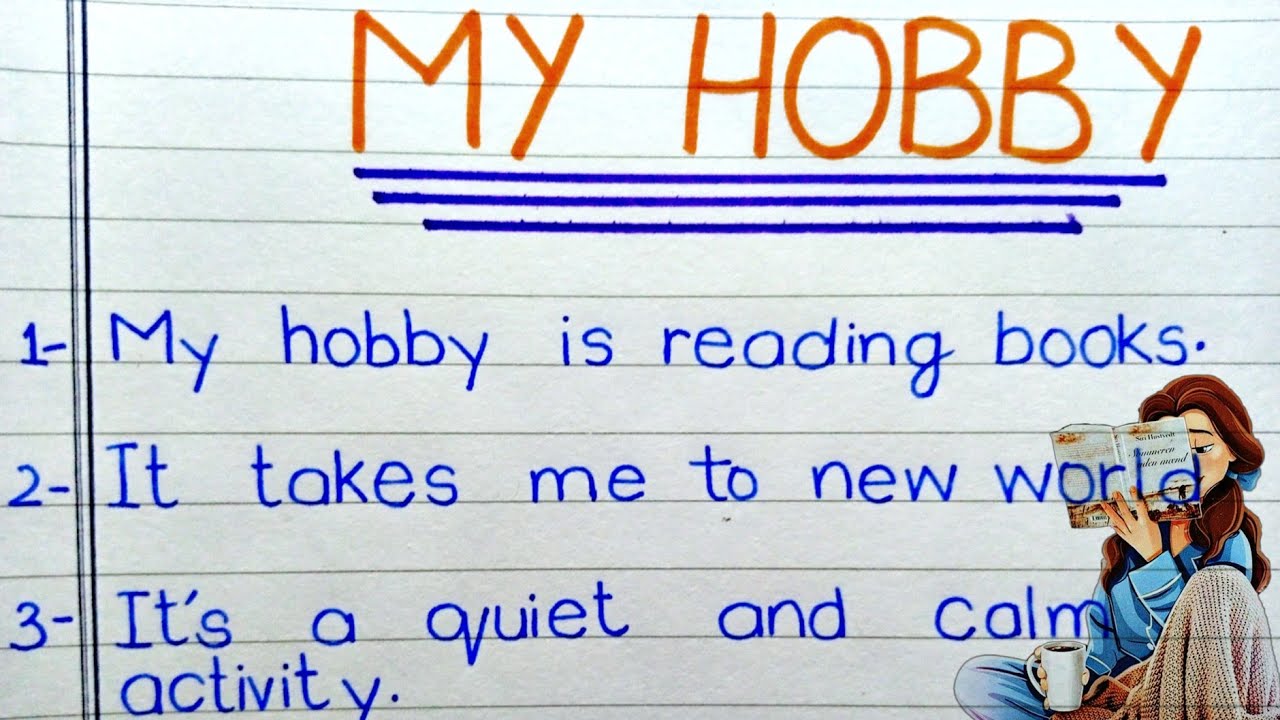 MY HOBBY
1- My hobby is reading books.
2- It takes me to new world
3- It's a quiet and calm
activity.
Siri Hustvedt